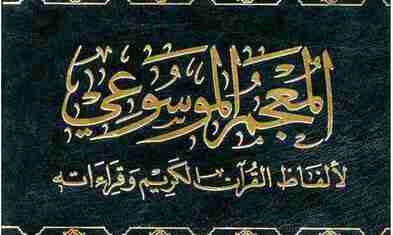 المعجم الموسوعي
لألفاظ القرآن الكريم وقراءاته